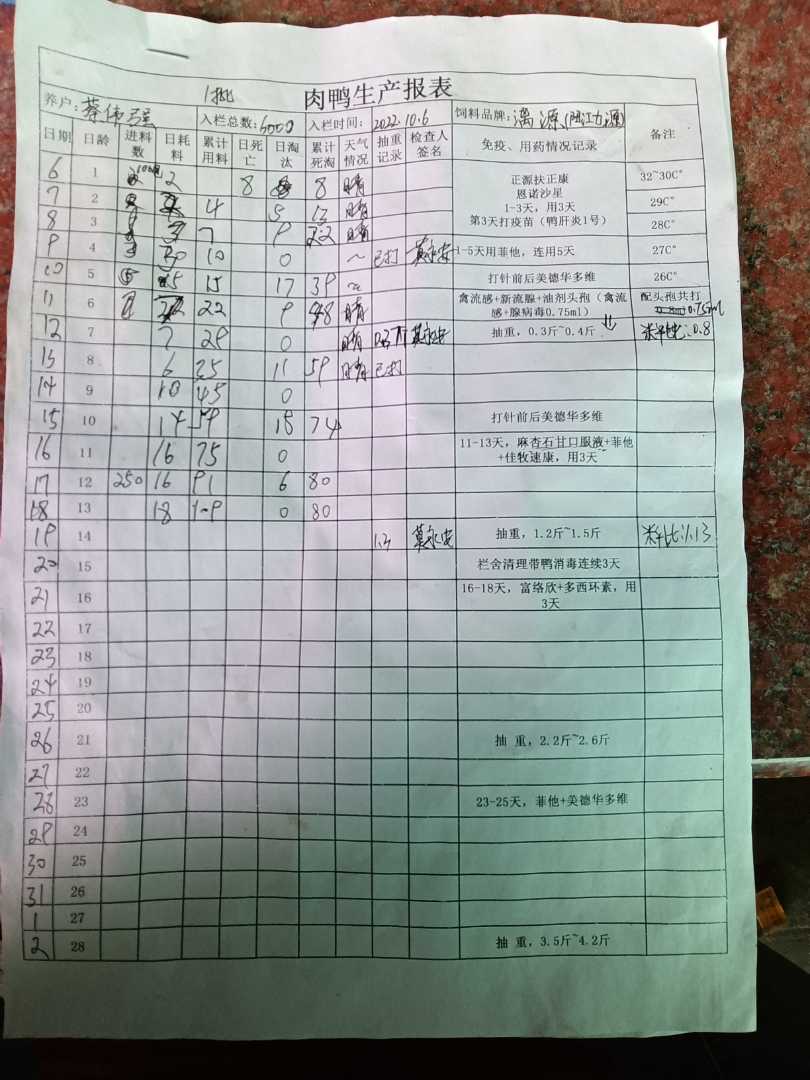 肉鸭生产报表
养户: 蔡伟强 1批 入栏总数: 6000 入栏时间: 2022.10.6 饲料品牌: 漓源(阳江力源)
日期 日龄 进料数 日耗料 累计用料 日死亡 日淘汰 累计死淘 天气情况 抽重记录 检查人签名 免疫、用药情况记录 备注
6 1 2 8 8 晴 正源扶正康 32~30C°
恩诺沙星
7 2 4 5 13 晴 1-3天，用3天 29C°
8 3 7 9 22 晴 第3天打疫苗（鸭肝炎1号） 28C°
9 4 10 0 ~ 已打 莫永安 1-5天用菲他，连用5天 27C°
10 5 15 17 39 ~ 打针前后美德华多维 26C°
11 6 22 9 48 晴 禽流感+新流腺+油剂头孢（禽流感+腺病毒0.75ml） 配头孢共打 0.75ml
12 7 7 29 0 晴 莫永安 抽重，0.3斤~0.4斤 料比:0.8
13 8 6 35 11 59 晴 已打
14 9 10 45 0
15 10 14 59 15 74 打针前后美德华多维
16 11 16 75 0 11-13天，麻杏石甘口服液+菲他+佳牧速康，用3天
17 12 250 16 91 6 80
18 13 18 109 0 80
19 14 1.3 莫永安 抽重，1.2斤~1.5斤 料比:1.13
20 15 栏舍清理带鸭消毒连续3天
21 16 16-18天，富络欣+多西环素，用3天
22 17
23 18
24 19
25 20
26 21 抽 重，2.2斤~2.6斤
27 22
28 23 23-25天，菲他+美德华多维
29 24
30 25
31 26
1 27
2 28 抽 重，3.5斤~4.2斤